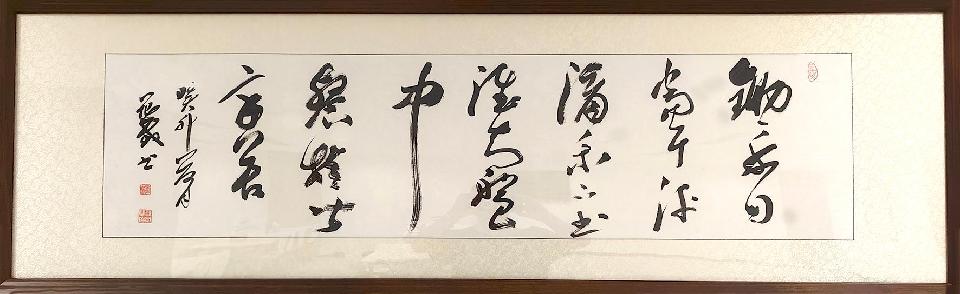 鋤禾日
當午汗
滴禾下土
誰知盤
中
餐粒粒皆
辛苦
癸卯荷月
書